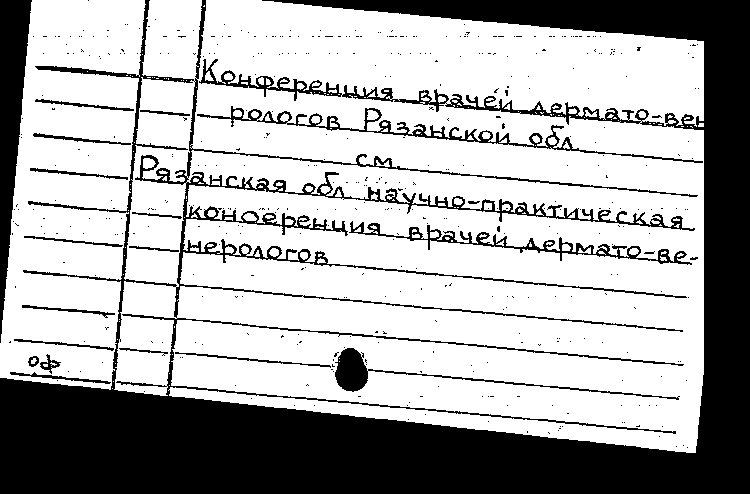 Конференция врачей дермато-вен
рологов Рязанской обл.
см.
Рязанская обл. научно-практическая
конференция врачей дермато-ве-
нерологов
оф